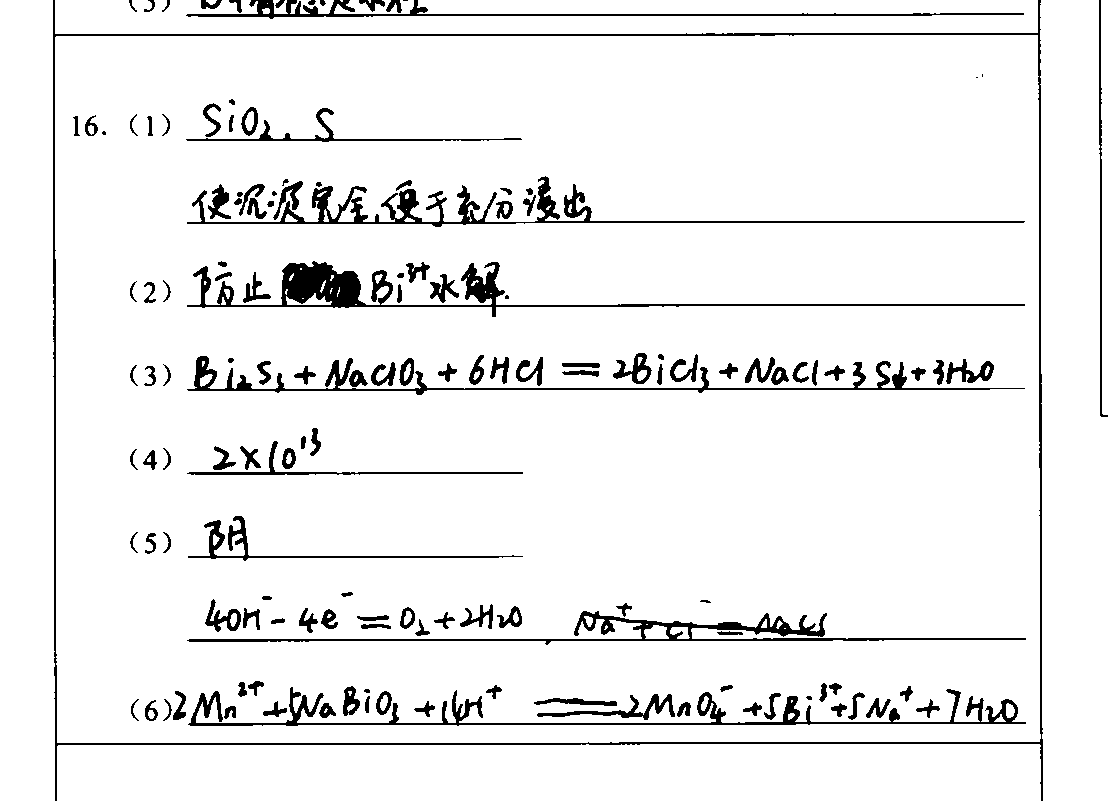 16.(1) SiO₂、S
使沉淀完全,便于充分浸出
(2) 防止Bi³⁺水解.
(3) Bi₂S₃+NaClO₃+6HCl=2BiCl₃+NaCl+3S↓+3H₂O
(4) 2×10¹³
(5) 阴
4OH⁻-4e⁻=O₂+2H₂O Na⁺+Cl⁻=NaCl
(6) 2Mn²⁺+5NaBiO₃+14H⁺=2MnO₄⁻+5Bi³⁺+5Na⁺+7H₂O